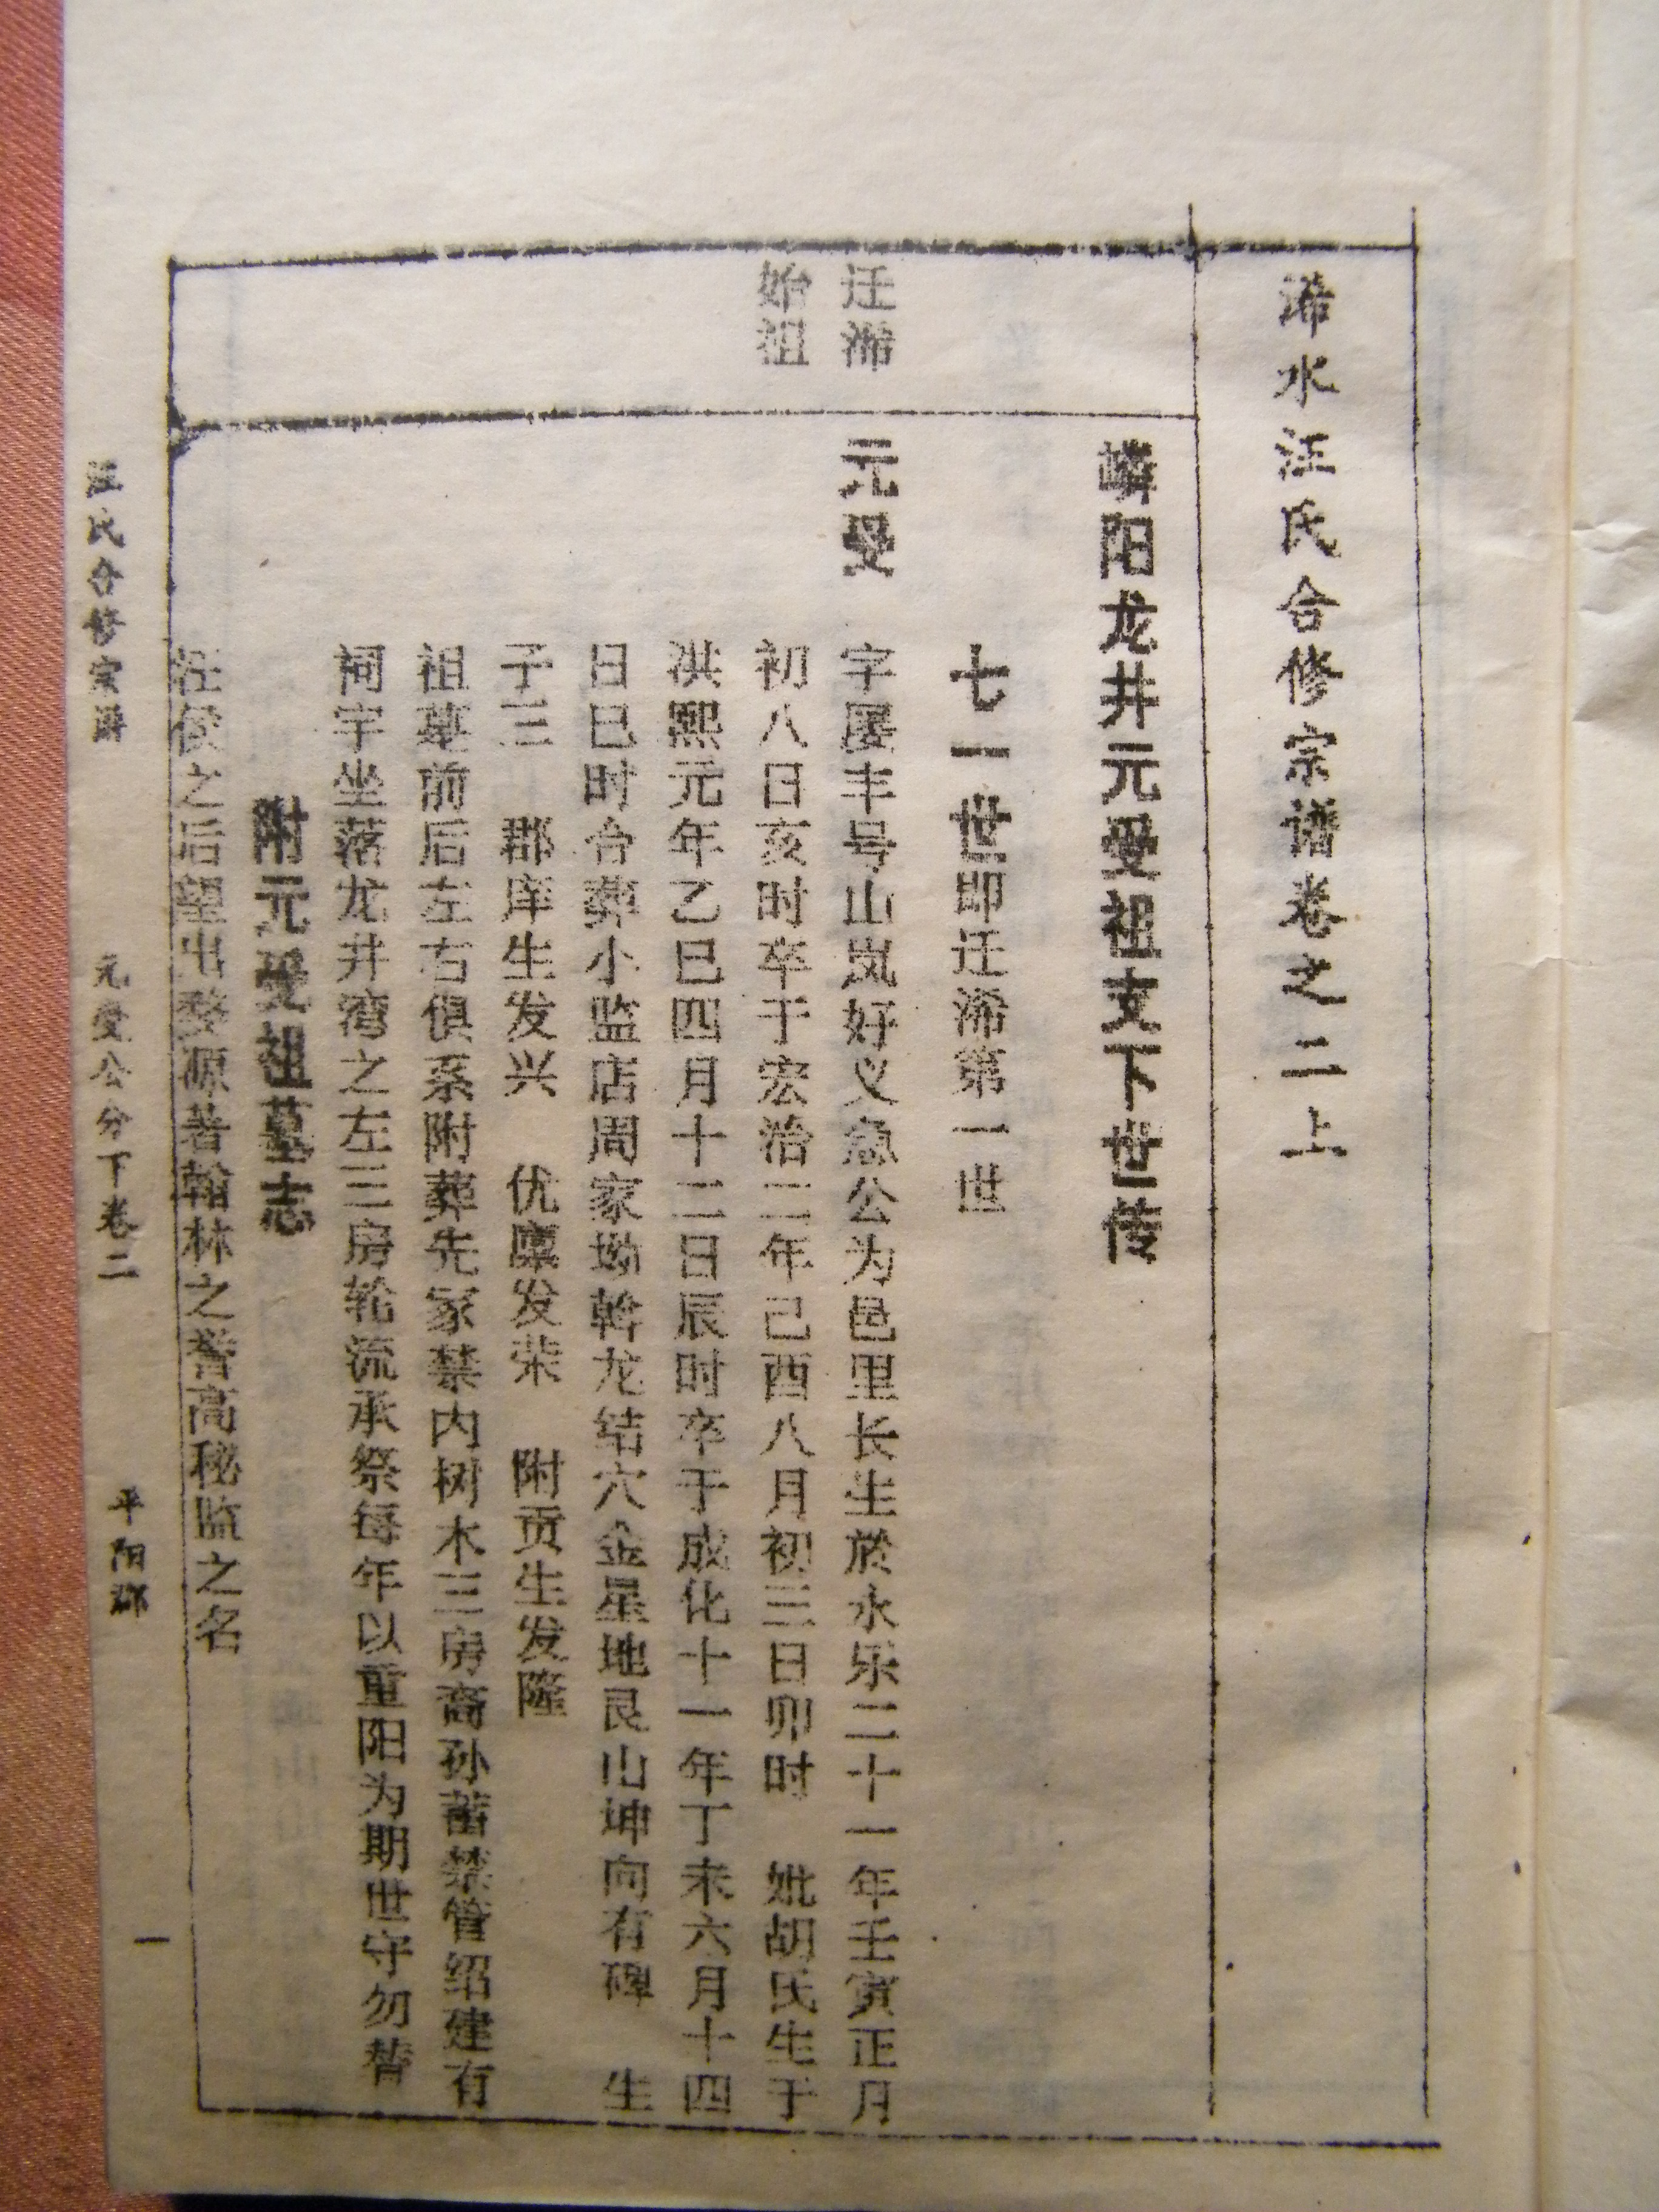 浠水汪氏合修宗谱卷之二上
嶙阳龙井元受祖支下世传
七一世即迁浠第一世
迁浠
始祖
元受
字屡丰号山岚好义急公为邑里长生於永乐二十一年壬寅正月
初八日亥时卒于宏治二年己酉八月初三日卯时 妣胡氏生于
洪熙元年乙巳四月十二日辰时卒于成化十一年丁未六月十四
日巳时合葬小监店周家坳斡龙结穴金星地艮山坤向有碑 生
子三 郡庠生发兴 优廪发荣 附贡生发隆
祖墓前后左右俱系附葬先冢禁内树木三房裔孙蓄禁管绍建有
祠宇坐落龙井湾之左三房轮流承祭每年以重阳为期世守勿替
附元受祖墓志
汪侯之后望出婺源著翰林之誉高秘监之名
汪氏合修宗谱 元受公分下卷二 平阳郡 一